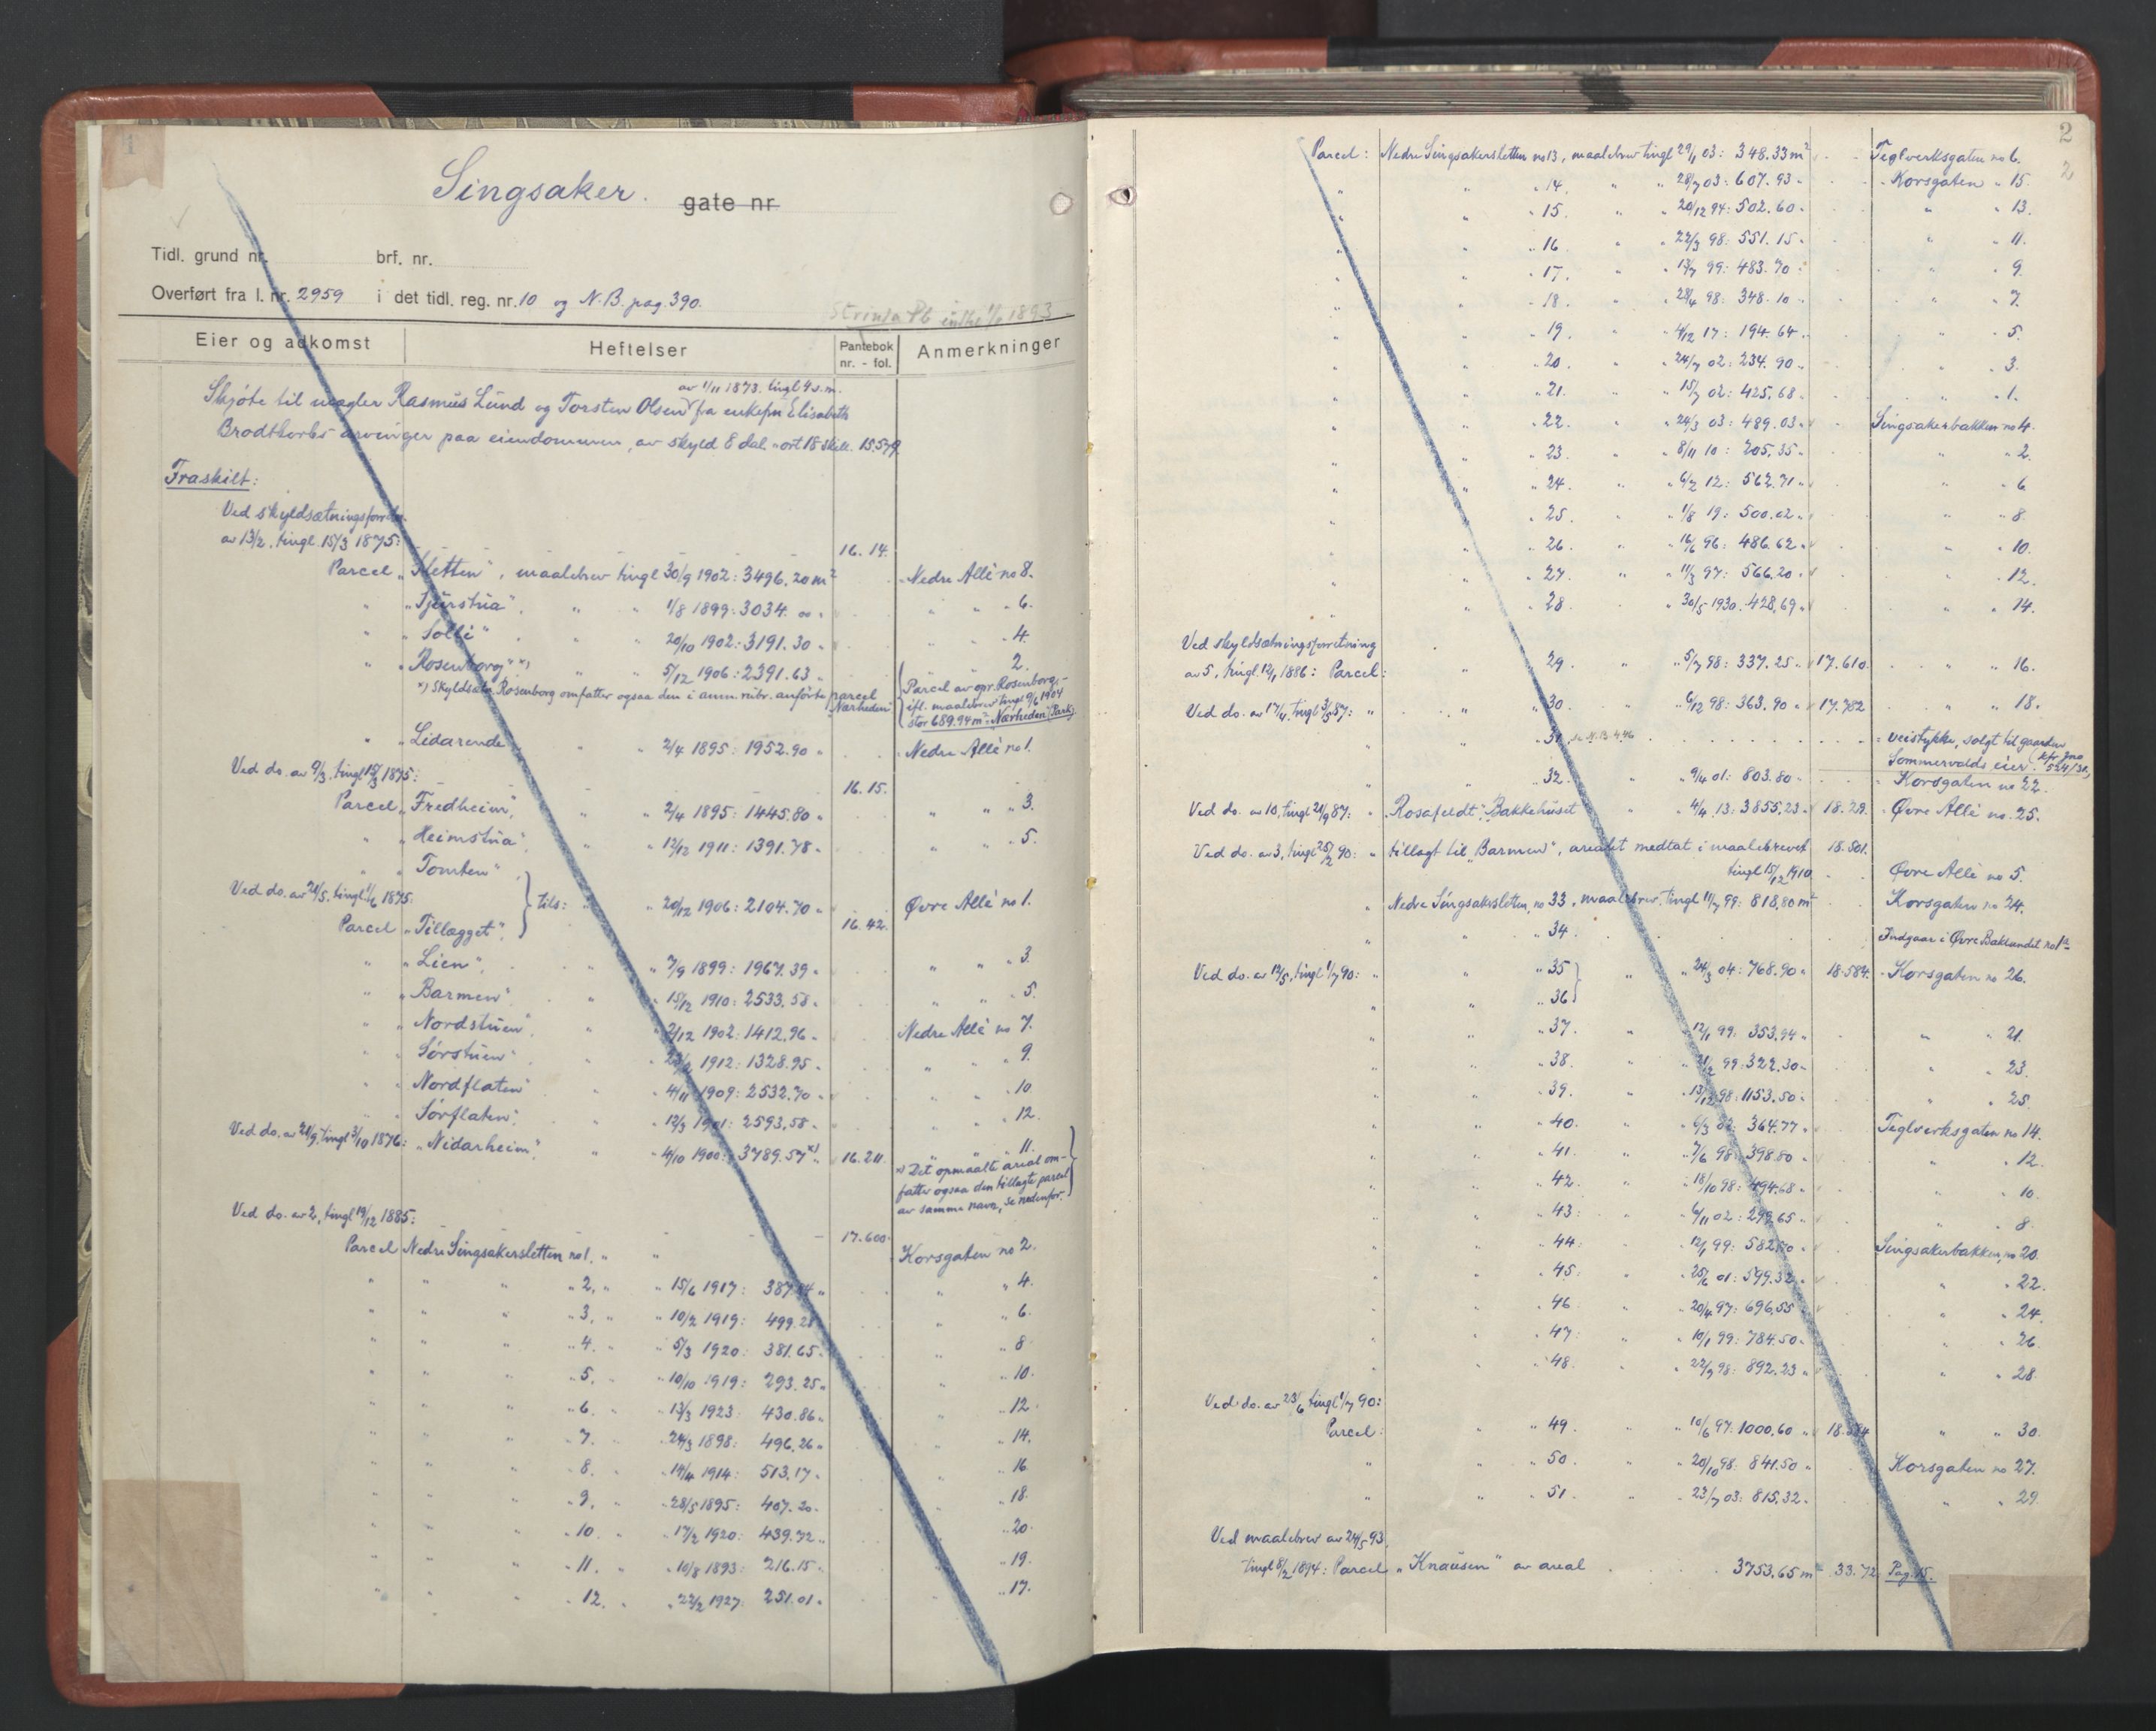 1
Singsaker. gate nr
Tidl. grund nr. brf. nr.
Overført fra l. nr. 2959 i det tidl. reg. nr. 10 og N.B. pag. 390.
Strinda Pb 1893
Eier og adkomst Heftelser Pantebok nr. - fol. Anmerkninger
av 1/11 1873. tingl 4 s.m.
Skjøte til megler Rasmus Lund og Torsten Olsen fra enkefru Elisabeth
Brodtkorbs arvinger paa eiendommen, av skyld 8 dal. " ort 18 skill. 15.579.
Fraskilt:
Ved skyldsætningsforretn.
av 13/2, tingl. 15/3 1875: 16. 14.
Parcel "Sletten", maalebrev tingl 30/9 1902: 3496,20 m² Nedre Allé no 8.
" "Tjurstua". " " 1/8 1899: 3034. 00 " " " " 6.
" "Solli" " " 20/10 1902: 3191. 30 " " " " 4.
" "Rosenborg" *) " 5/12 1906: 2391.63 " " 2.
*) Skyldsatte Rosenborg omfatter ogsaa den i anm. rubr. anførte parcel "Nærheden"
Parcel av opr. Rosenborg,
ifl. maalebrev tingl 9/6 1904
stor 689.94 m² "Nærheden" (Park)
" "Lidarende" " " 2/4 1895: 1952.90 " Nedre Allé no 1.
Ved do. av 9/3, tingl 15/3 1875: 16. 15.
Parcel "Fredheim", " " 2/4 1895: 1445.80 " " " 3.
" "Heimstua", " " 12/12 1911: 1391.78 " " " 5.
" "Tomten",
Ved do. av 21/5. tingl 1/6 1875. tils: " " 20/12 1906: 2104.70 " Øvre Allé no 1.
Parcel "Tillægget", 16. 42.
" "Lien", " " 7/9 1899: 1967.39 " " " 3.
" "Barmen", " " 15/12 1910: 2533.58 " " " 5.
" "Nordstuen", " " 2/12 1902: 1412,96 " Nedre Allé no 7.
" "Sørstuen" " 1912: 1328.95 " " " 9.
" "Nordflaten" " " 4/11 1909: 2532.70 " " " 10
" "Sørflaten". " " 12/3 1901: 2593,58 " " " 12.
Ved do. av 21/9. tingl 3/10 1876: "Nidarheim", " " 4/10 1900: 3789.57 *) " 16. 211. " " " 11.
*) Det opmaalte areal om-
fatter ogsaa den tillagte parcel
av samme navn, se nedenfor.
Ved do. av 2, tingl 19/12 1885: 17. 600.
Parcel Nedre Singsakersletten no 1. " " Korsgaten no 2.
" " " " 2, " " 15/6 1917: 387.84 " " " 4.
" " " " 3, " " 10/2 1919: 499.28 " " 6.
" " " " 4. " " 5/3 1920: 381.65 " " " 8
" " " " 5. " " 10/10 1919: 293.25 " " " 10.
" " " " 6. " " 13/3 1923: 430.86 " " " 12.
" " " " 7. " " 24/3 1898: 496.26 " " " 14.
" " " " 8. " " 14/4 1914: 513.17 " " " 16
" " " " 9, " " 28/5 1895: 407.20 " " " 18.
" " " " 10. " " 17/2 1920: 439.72 " " " 20.
" " " " 11. " " 10/8 1893: 216.15 " " " 19.
" " " " 12. " " 22/2 1927: 251.01 " " " 17.
2
2
Parcel: Nedre Singsakersletten no 13, maalebrev tingl 29/1 03: 348.33 m² Teglverksgaten no 6.
" " " 14. " " 28/7 03: 607.93 " Korsgaten " 15.
" " " 15. " " 20/12 94: 502.60 " " " 13.
" " " 16 " " 22/3 98: 551.15 " " " 11.
" " " 17. " " 13/7 99: 483.70 " " " 9.
" " " 18. " " 28/4 98: 348.10 " " " 7.
" " " 19. " " 4/12 17: 194.64 " " " 5.
" " " 20 " " 24/7 02: 234.90 " " " 3.
" " " 21. " " 15/7 02: 425,68 " " " 1.
" " " 22. " " 24/3 03: 489.03 " Singsakerbakken no 4.
" " " 23. " " 8/11 10: 205,35 " " " 2.
" " " 24. " " 6/2 12: 562.71 " " " 6
" " " 25. " " 1/8 19: 500.02 " " " 8.
" " " 26. " " 16/6 96: 486.62 " " " 10.
" " " 27. " " 11/3 97: 566.20 " " " 12.
" " " 28. " " 30/5 1930. 428,69 " " " 14.
Ved skyldsætningsforretning
av 5, tingl 12/1 1886: Parcel: " " 29. " " 5/7 98: 337.25 " 17.610. " " 16.
Ved do. av 17/4, tingl 3/5 87: " " " 30. " " 6/12 98: 363.90 " 17.782 " " 18.
" " " 31. se N.B. 446 " veistykke, solgt til gaarden
Sommervolds eier. (kfr. jno 524/31)
" " " 32. " " 9/4 01: 803.80 " Korsgaten no 22.
Ved do. av 10, tingl 21/9 87: " Rosafeldt, "Bakkehuset " " 4/4 13: 3855,23 " 18.29. " Øvre Allé no. 25.
Ved do. av 3, tingl 25/2 90: " tillagt til "Barmen", arealet medtat i maalebrevet 18.501.
tingl 15/12 1910. Øvre Allé no 5.
" Nedre Singsakersletten, no 33, maalebrev, tingl 11/7 99: 818,80 m² Korsgaten no 24.
" " " 34. Indgaar i Øvre Baklandet no 1
Ved do. av 12/5, tingl 1/7 90: " " " 35 " " 24/3 04: 768.90 " 18.584. " Korsgaten no 26.
" " " 36
" " " 37. " " 12/1 99: 353.94 " " " 21.
" " " 38. " " 99: 322.30 " " " 23.
" " " 39. " " 13/12 98: 1153.50 " " " 25.
" " " 40. " " 364.77 " Teglverksgaten no 14.
" " " 41. " " 7/6 98: 398.80 " " " 12.
" " " 42. " " 18/10 98: 494.68 " " " 10.
" " " 43. " " 6/11 02: 299.65 " " " 8.
" " " 44. " " 12/1 99: Singsakerbakken, no 20.
" " " 45. " " 25/6 01: 599.32 " " " 22.
" " " 46 " " 20/4 97: 696,55 " " " 24.
" " " 47. " " 10/1 99: 784.50 " " " 26
" " " 48. " " 22/7 98: 892.23 " " " 28
Ved do. av 23/6, tingl 1/7 90:
Parcel: " " 49. " " 10/6 97: 1000,60 " 18.584 " " 30.
" " " 50. " " 20/10 98: 841.50 " Korsgaten no 27.
" " " 51. " " 23/7 03: 815.32 " " " 29
Ved maalebrev av 24/5 93,
tingl 8/2 1894: Parcel "Knausen" av areal 3753,65 m² 33.72. Pag. 15.